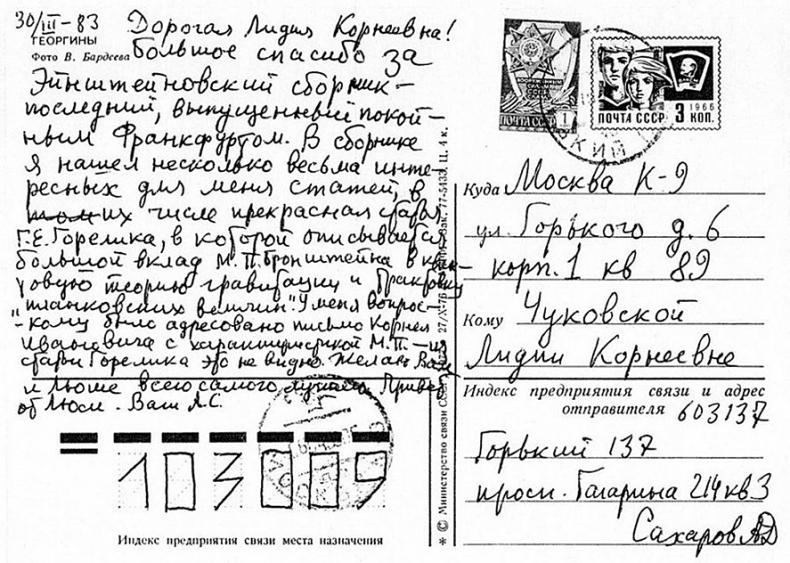 30/III-83
Дорогая Лидия Корнеевна!
ГЕОРГИНЫ
Фото В. Бардеева
большое спасибо за
Эйнштейновский сборник –
последний, выпущенный покой-
ным Франкфуртом. В сборнике
я нашел несколько весьма инте-
ресных для меня статей, в
их числе прекрасная статья
Г.Е. Горелика, в которой описывается
большой вклад М.П. Бронштейна в кван-
товую теорию гравитации и трактовку
"планковских величин". У меня вопрос –
– кому было адресовано письмо Корнея
Ивановича с характеристикой М.П. – из
статьи Горелика это не видно. Желаю Вам
и Люше всего самого лучшего. Привет
от Люси. Ваш А.С.
103009
Индекс предприятия связи места назначения
* © Министерство связи СССР 27/X-76 Зак. 77-5433. Ц. 4 к.
ПОЧТА СССР 1
ПОЧТА СССР 3 КОП. 1966
Куда Москва К-9
ул. Горького д. 6
корп. 1 кв 89
Кому Чуковской
Лидии Корнеевне
Индекс предприятия связи и адрес
отправителя 603137
Горький 137
просп. Гагарина 214 кв 3
Сахаров АД